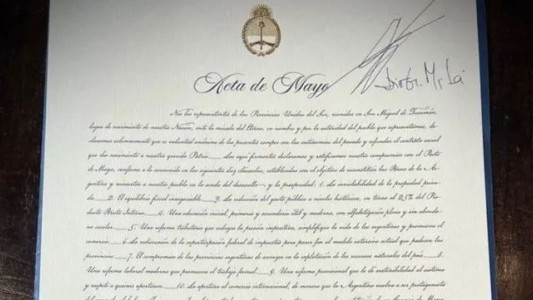 Acta de Mayo
Nos los representantes de las Provincias Unidas del Sur, reunidos en San Miguel de Tucumán,
lugar de nacimiento de nuestra Nación, ante la mirada del Eterno, en nombre y por la autoridad del pueblo que representamos, de-
claramos solemnemente que es voluntad unánime de las presentes romper con las antinomias del pasado y refundar el contrato social
que dio nacimiento a nuestra querida Patria. Los aquí firmantes declaramos y ratificamos nuestro compromiso con el Pacto
de Mayo, conforme a lo convenido en las siguientes diez cláusulas, establecidas con el objetivo de reconstituir las Bases de la Ar-
gentina y reinsertar a nuestro pueblo en la senda del desarrollo y la prosperidad: 1. La inviolabilidad de la propiedad priva-
da. 2. El equilibrio fiscal innegociable. 3. La reducción del gasto público a niveles históricos, en torno al 25% del Pro-
ducto Bruto Interno. 4. Una educación inicial, primaria y secundaria útil y moderna, con alfabetización plena y sin abando-
no escolar. 5. Una reforma tributaria que reduzca la presión impositiva, simplifique la vida de los argentinos y promueva el
comercio. 6. La rediscusión de la coparticipación federal de impuestos para poner fin al modelo extorsivo actual que padecen las
provincias. 7. El compromiso de las provincias argentinas de avanzar en la explotación de los recursos naturales del país. 8.
Una reforma laboral moderna que promueva el trabajo formal. 9. Una reforma previsional que le dé sustentabilidad al sistema
y respete a quienes aportaron. 10. La apertura al comercio internacional, de manera que la Argentina vuelva a ser protagonista